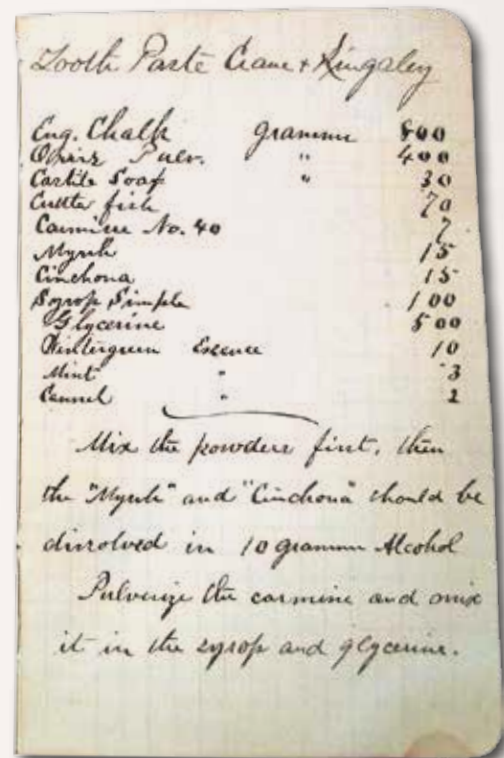 Tooth Paste Crane + Kingsley
Eng. Chalk gramme 800
Orris Pulv. " 400
Castile Soap " 30
Cuttle fish 70
Carmine No. 40 7
Myrrh 15
Cinchona 15
Syrop Simple 100
Glycerine 500
Wintergreen Essence 10
Mint " 3
Cannel " 2
Mix the powders first, then
the "Myrrh" and "Cinchona" should be
dissolved in 10 gramme Alcohol
Pulverize the carmine and mix
it in the syrop and glycerine.